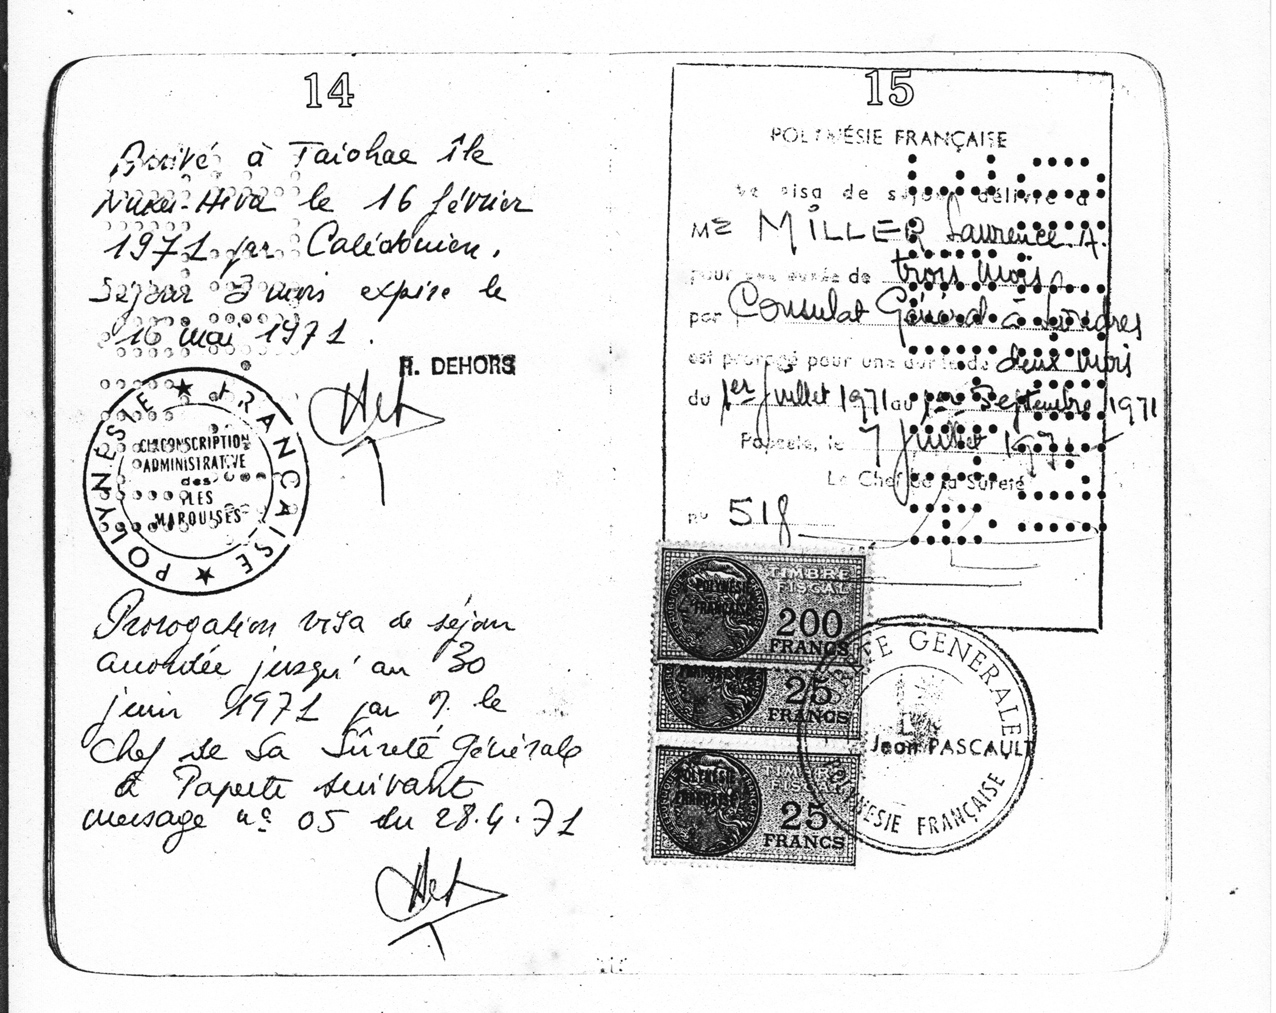 14
Arrivé à Taiohae île
Nuku-Hiva le 16 février
1971 par Calédonien.
Séjour 3 mois expire le
16 mai 1971.
R. DEHORS
POLYNÉSIE ★ FRANÇAISE ★
CIRCONSCRIPTION
ADMINISTRATIVE
des
ILES
MARQUISES
Prorogation visa de séjour
accordée jusqu'au 30
juin 1971 par M. le
Chef de la Sûreté Générale
à Papeete suivant
message n° 05 du 28.4.71
15
POLYNÉSIE FRANÇAISE
Le visa de séjour délivré à
Mr MILLER Laurence A.
pour une durée de trois mois
par Consulat Général à Londres
est prorogé pour une durée de deux mois
du 1er juillet 1971 au 1er Septembre 1971
Papeete, le 7 juillet 1971
Le Chef de la Sûreté
n° 518
POLYNÉSIE
FRANÇAISE
TIMBRE
FISCAL
200
FRANCS
FRANÇAISE
25
FRANCS
POLYNÉSIE
FRANÇAISE
TIMBRE
FISCAL
25
FRANCS
SÛRETÉ GÉNÉRALE
Jean PASCAULT
POLYNÉSIE FRANÇAISE